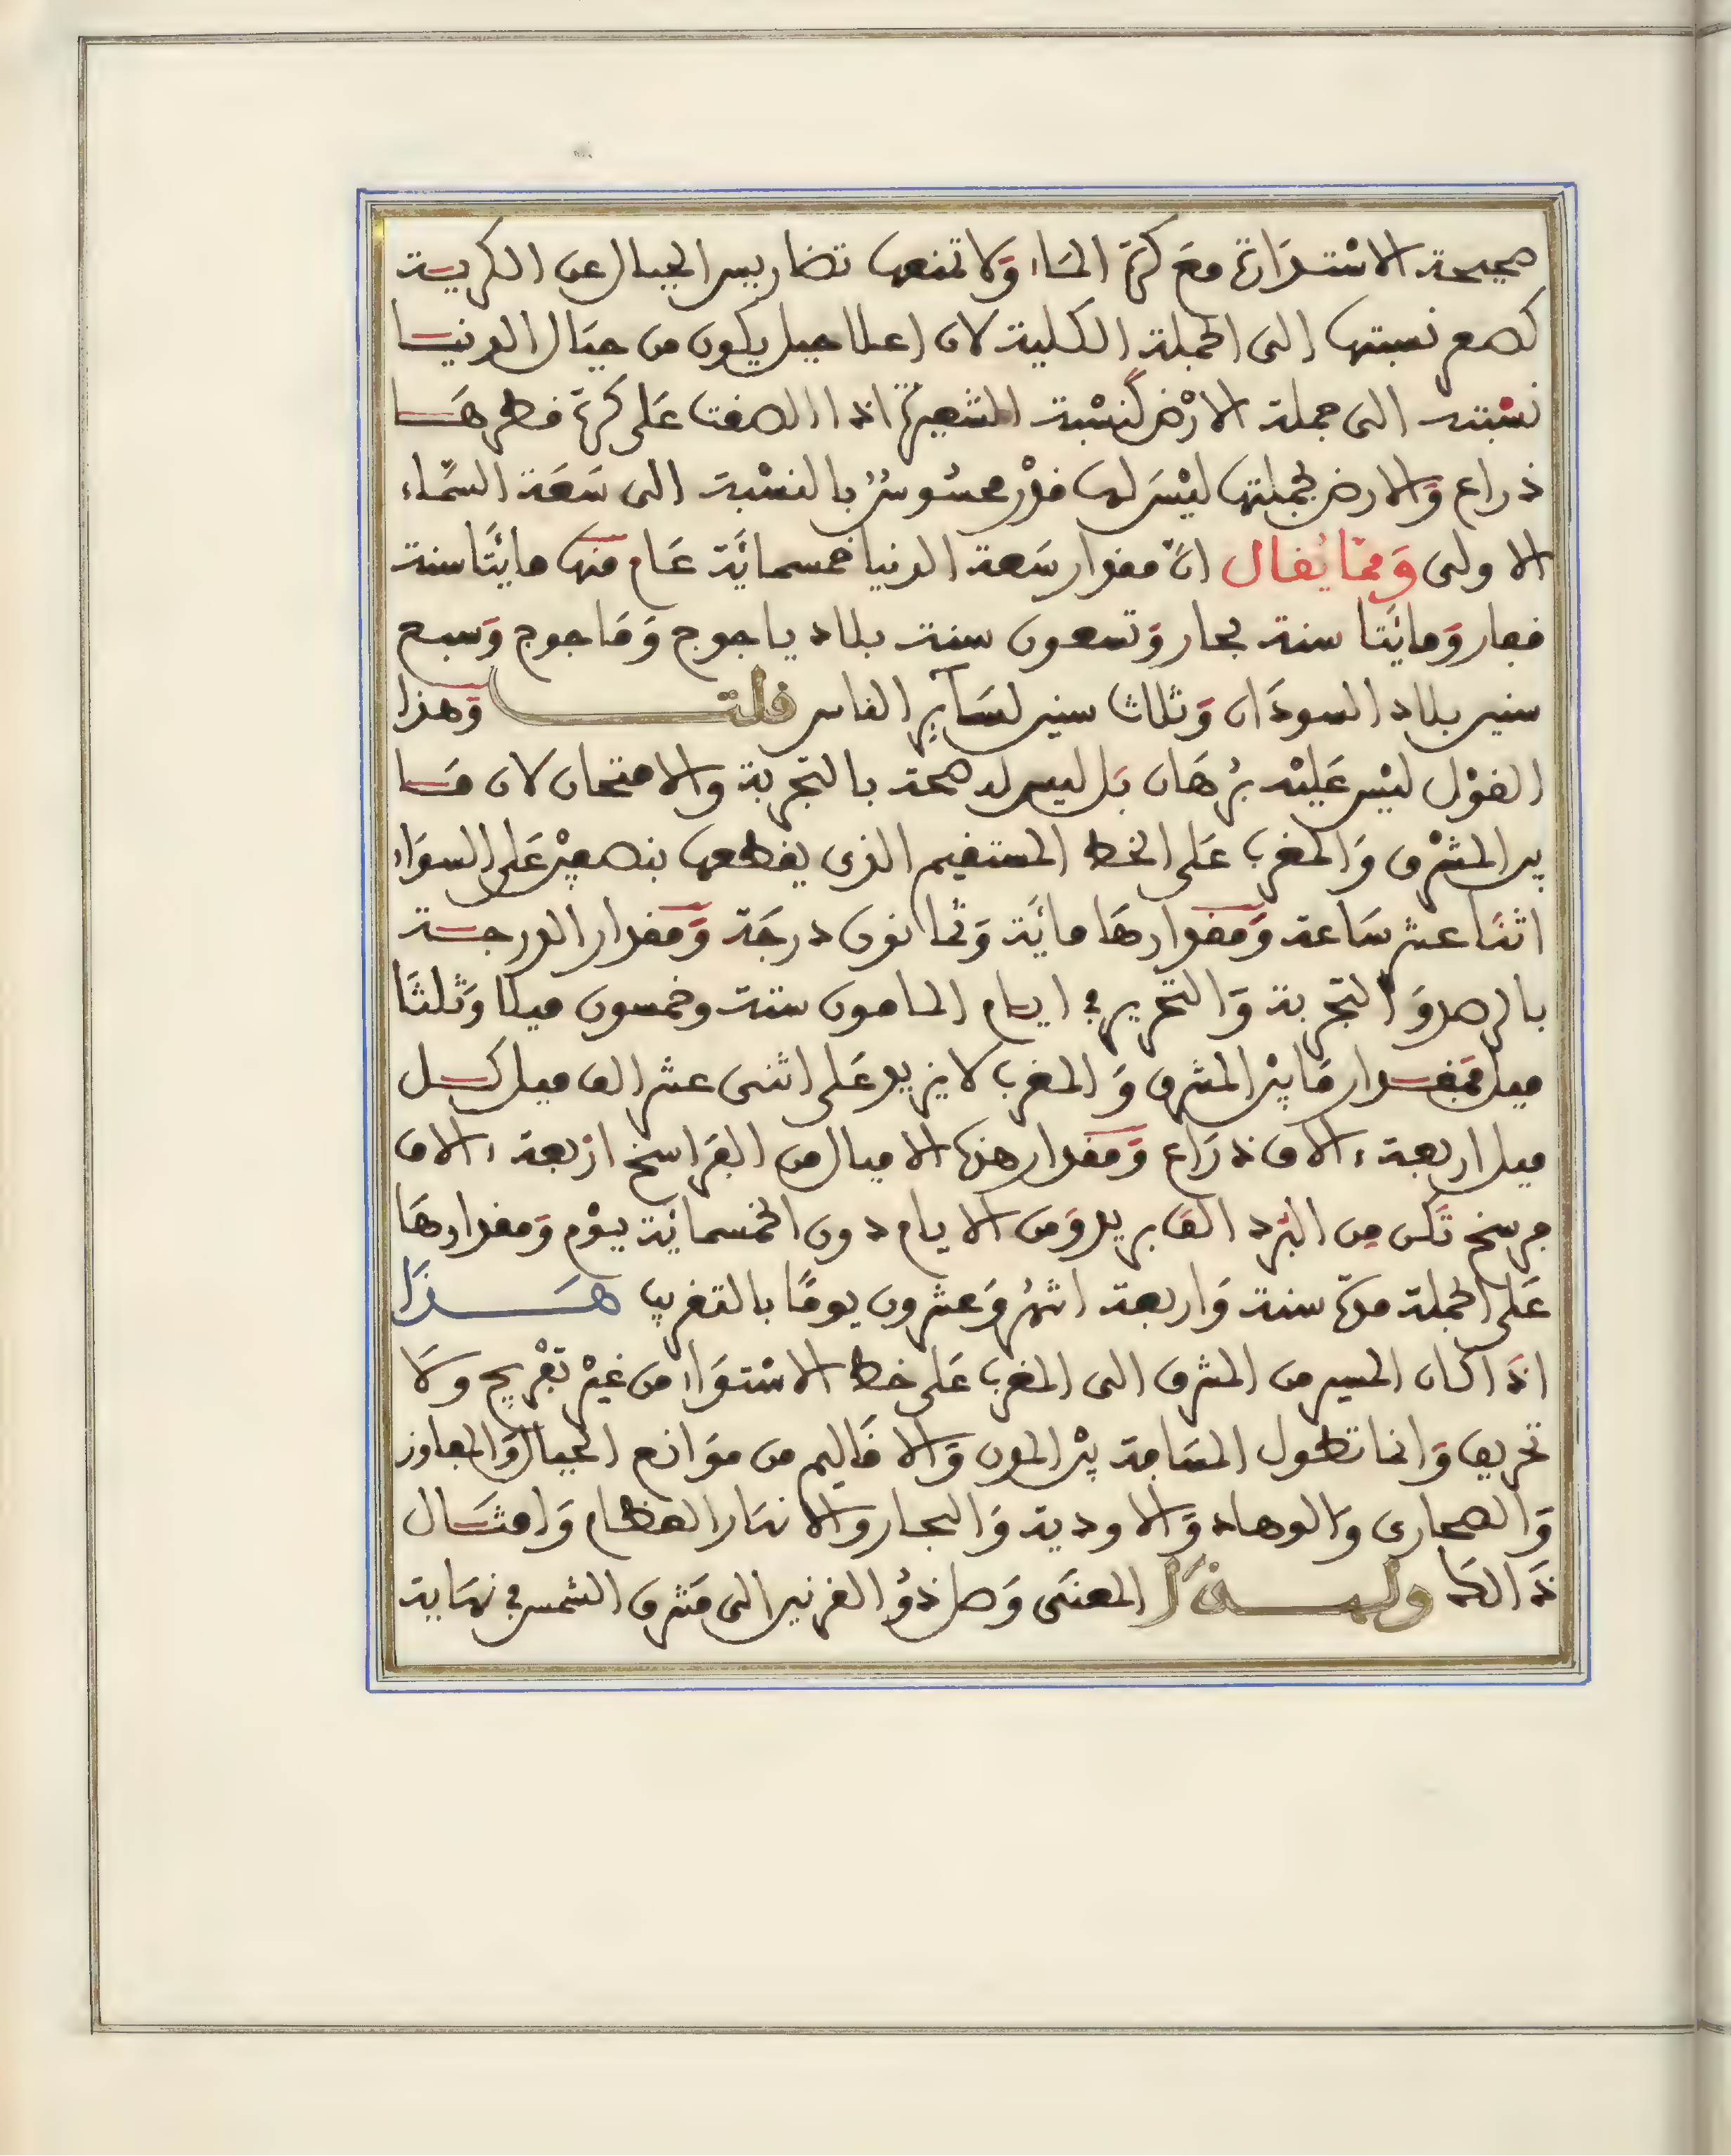 صحيحة الاسْتدَارَة معَ كرَة المَاء وَلا تمنعها تضاريس الجبال عن الكرية
لصغر نسبتها إلى الجملة الكلية لان اعلا جبل يكون من جبَال الدنيا
نسْبته الى جملة الارْض كنسْبة الشعيرَة اذا الصقت عَلى كرَة قطرهَا
ذراع وَالارض بجملتها ليْسَ لها قدْر محسُوسٌ بالنسْبة الى سَعَة السَّماء
الاولى وَممّا يُقال انّ مقدار سَعة الدنيا خمسمائَة عَام منها مائتَا سنة
قفار وَمائَتا سنة بحار وَتسعون سنة بلاد ياجوج وَمَاجوج وَسبع
سنين بلاد السودَان وَثلاث سنين لسَآيِر الناس قلت وَهذا
القوْل ليْس عَليْه برْهَان بَل ليس له صحة بالتجربة وَالامتحان لان مَا
بين المشْرق وَالمغرب عَلى الخط المستقيم الذى يقطعها بنصفيْن عَلى السوَاء
اثنَا عشر سَاعة وَمقدارهَا مائَة وَثمانون درجَة وَمقدار الدرجة
بالرصد وَالتجربة وَالتحرير في ايام المامون ستة وخمسون ميلا وَثلثَا
ميل فمقدار مَا بيْن المشرق وَالمغرب لا يزيد عَلى اثنى عشر الف ميل كل
ميل اربعة ءالاف ذرَاع وَمقدار هذه الاميال من الفرَاسخ ارْبعة ءالاف
فرسخ تَكن مِن البُرد الفَا بريد وَمن الايام دون الخمسمائة يوْم وَمقدارهَا
عَلى الجملة مدّة سنة وَاربعة اشهُر وَعشرون يومًا بالتقريب هَذَا
اذَا كان المسير من المشرق الى المغرب عَلى خط الاسْتوَاء من غيْر تعْريج وَلا
تحريف وَانما تطول المسَافة بيْن المدن وَالاقَاليم من موَانع الجبال وَالمفاوز
وَالصحارى وَالوهاد وَالاودية وَالبحار وَالانهَار العظام وَامثَال
ذَالكَ ولهذَا المعنَى وَصل ذوُ القرنين الى مَشرق الشمس في نهَاية